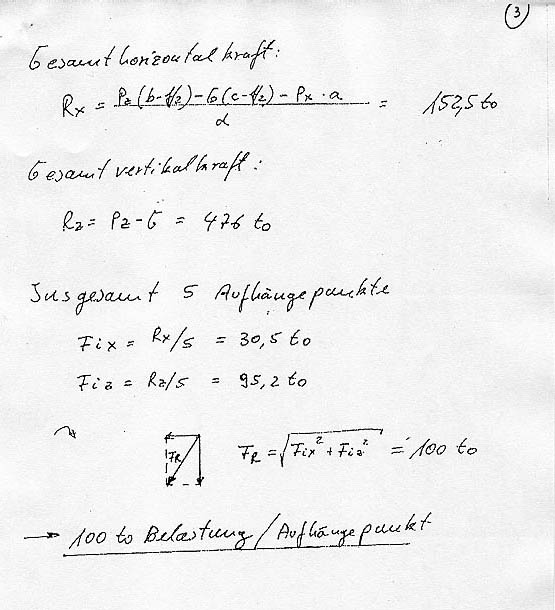 3
Gesamthorizontalkraft:
Rx = Pz(b-f/2)-G(c-f/2)-Px·a / d = 152,5 to
Gesamtvertikalkraft:
Rz = Pz-G = 476 to
Insgesamt 5 Aufhängepunkte
Fix = Rx/5 = 30,5 to
Fiz = Rz/5 = 95,2 to
FR FR = √Fix² + Fiz² = 100 to
→ 100 to Belastung/Aufhängepunkt